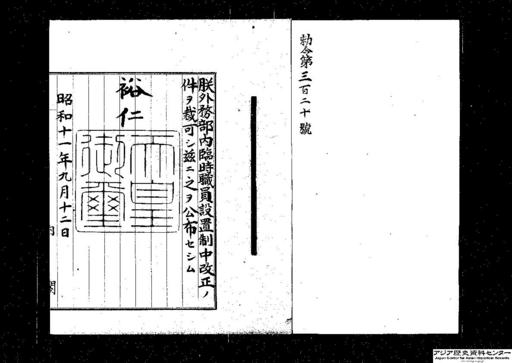 勅令第三百二十號
朕外務部內臨時職員設置制中改正ノ
件ヲ裁可シ茲ニ之ヲ公布セシム
裕仁
天皇御璽
昭和十一年九月十二日
内閣
アジア歴史資料センター
Japan Center for Asian Historical Records